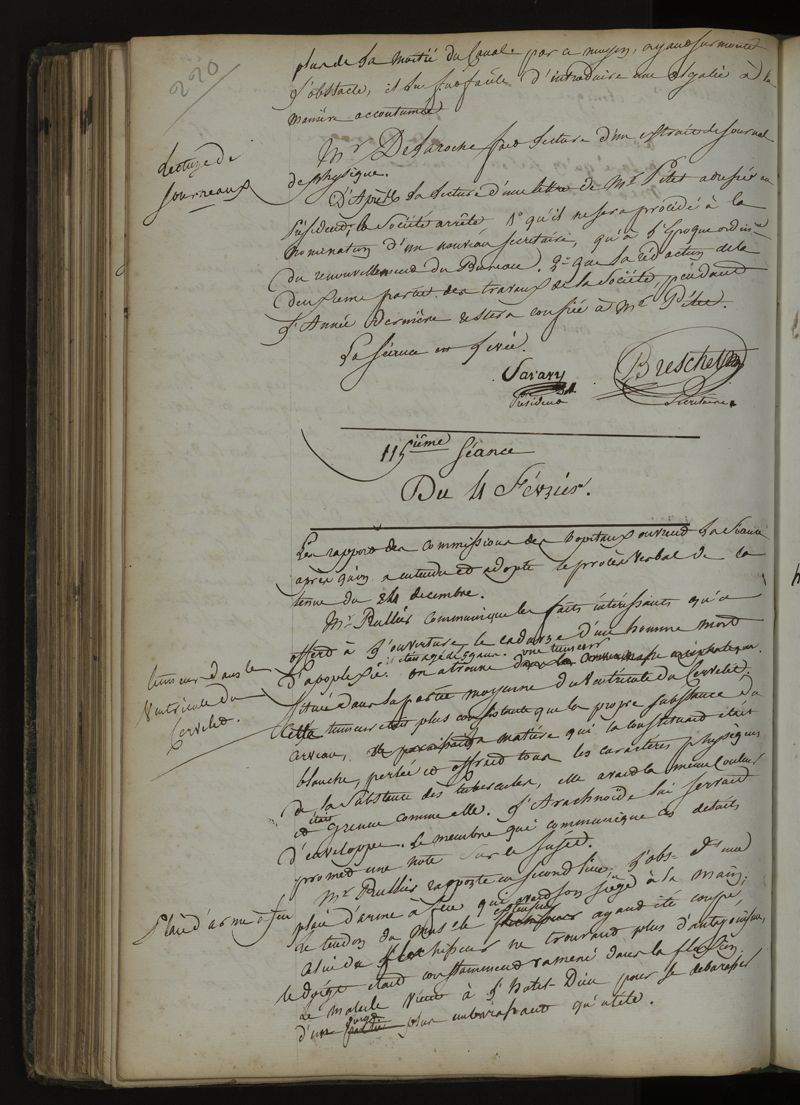 220
plus de la moitié du Canal. par ce moyen, ayant surmonté
l'obstacle, il fut facile d'introduire une algalie à la
manière accoutumée
Lecture de
Journeaux
Mr Delaroche fait lecture d'un extrait de Journal
de physique.
D'Après la lecture d'une lettre de Mr Petet adressée au
Président, la Société arrête 1° qu'il ne sera procédé à la
nomination d'un nouveau secrétaire, qu'à l'Epoque ordinre
du renouvellement du Bureau. 2° que la rédaction de la
deuxieme partie des travaux de la Société, pendant
l'Année Dernière restera confiée à Mr Petet.
La séance est levée.
Savary
Président
Breschet
Secrétaire.
115ieme Séance
Du 4 Février.
Les rapports des Commissions des hopitaux ouvrent la Séance
après qu'on a entendu et adopté le procès verbal de la
tenue du 24 decembre.
Mr Rullier communique les faits intéressants qu'a
offert à l'ouverture le cadavre d'un homme mort
d'apoplexie. On a trouvé une tumeur
tumeur dans le
Ventricule du
Cervelet.
située dans la partie moyenne du Ventricule du Cervelet,
Cette tumeur était plus consistante que la propre substance du
cerveau, la matière qui la constituait était
blanche, perlée et offrait tous les caractères physiques
de la substance des tubercules, elle avait la même couleur
et était Grenue comme elle. L'Arachnoïde lui servait
d'enveloppe. le membre qui communique ces details
promet une note sur le sujet.
Plaie d'arme à feu
Mr Rullier rapporte en second lieu, l'obs. d'une
plaie d'arme à feu qui avait son siège à la main;
le tendon du muscle extenseur ayant été coupé,
celui du fléchisseur ne trouvant plus d'antagonisme,
le doigt etait constamment ramené dans la flexion.
Le malade vient à l'hotel-Dieu pour se débarasser
d'un doigt plus embarassant qu'utile.